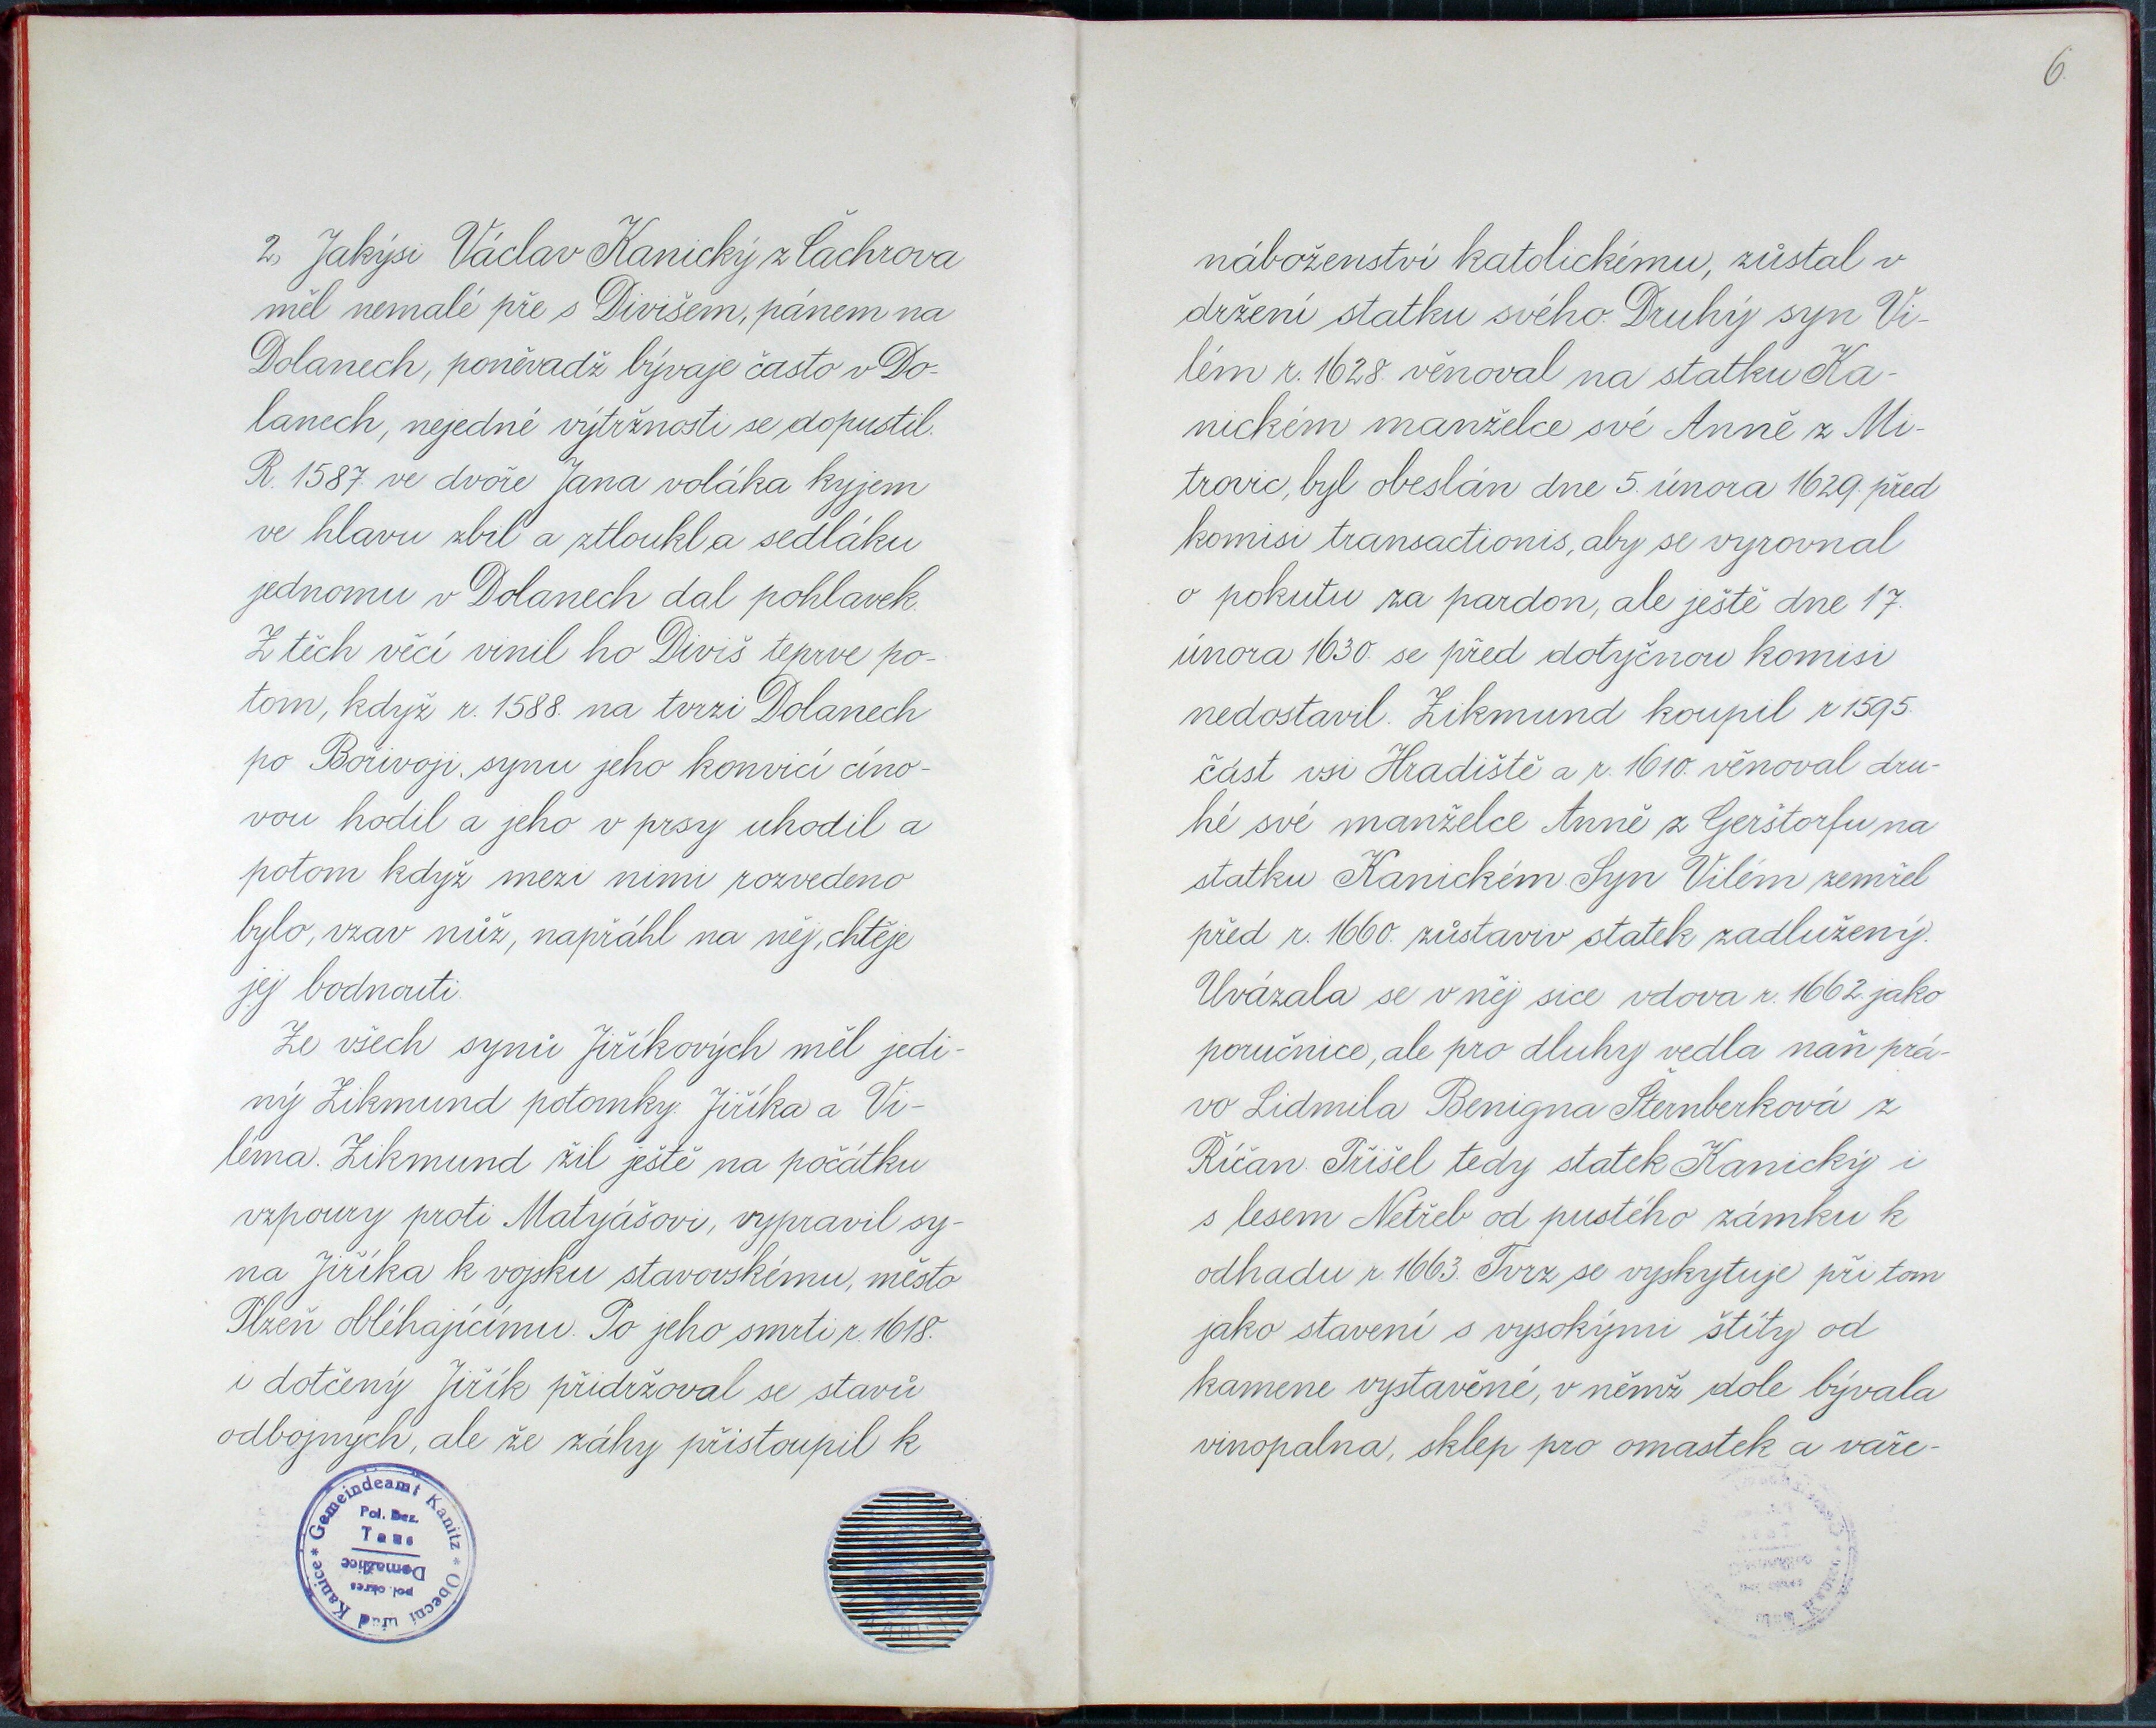 2, Jakýsi Václav Kanický z Čachrova
měl nemalé pře s Divišem, pánem na
Dolanech, poněvadž bývaje často v Do-
lanech, nejedné výtržnosti se dopustil.
R. 1587 ve dvoře Jana voláka kyjem
ve hlavu zbil a ztloukl a sedláku
jednomu v Dolanech dal pohlavek.
Z těch věcí vinil ho Diviš teprve po-
tom, když r. 1588. na tvrzi Dolanech
po Bořivoji, synu jeho konvicí cíno-
vou hodil a jeho v prsy uhodil a
potom když mezi nimi rozvedeno
bylo, vzav nůž, napřáhl na něj, chtěje
jej bodnouti.
Ze všech synů Jiříkových měl jedi-
ný Zikmund potomky: Jiříka a Vi-
léma. Zikmund žil ještě na počátku
vzpoury proti Matyášovi, vypravil sy-
na Jiříka k vojsku stavovskému, město
Plzeň obléhajícímu. Po jeho smrti r. 1618.
i dotčený Jiřík přidržoval se stavů
odbojných, ale že záhy přistoupil k
Gemeindeamt Kanitz * Obecní úřad Kanice *
Pol. Bez.
Taus
Domažlice
pol. okres
6.
náboženství katolickému, zůstal v
držení statku svého. Druhý syn Vi-
lém r. 1628. věnoval na statku Ka-
nickém manželce své Anně z Mi-
trovic, byl obeslán dne 5. února 1629. před
komisi transactionis, aby se vyrovnal
o pokutu za pardon, ale ještě dne 17.
února 1630. se před dotyčnou komisi
nedostavil. Zikmund koupil r 1595.
část vsi Hradiště a r. 1610. věnoval dru-
hé své manželce Anně z Gerštorfu na
statku Kanickém. Syn Vilém zemřel
před r. 1660. zůstaviv statek zadlužený.
Uvázala se v něj sice vdova r. 1662. jako
poručnice, ale pro dluhy vedla naň prá-
vo Lidmila Benigna Šternberková z
Říčan. Přišel tedy statek Kanický i
s lesem Netřeb od pustého zámku k
odhadu r. 1663. Tvrz se vyskytuje při tom
jako stavení s vysokými štíty od
kamene vystavěné, v němž dole bývala
vinopalna, sklep pro omastek a vaře-